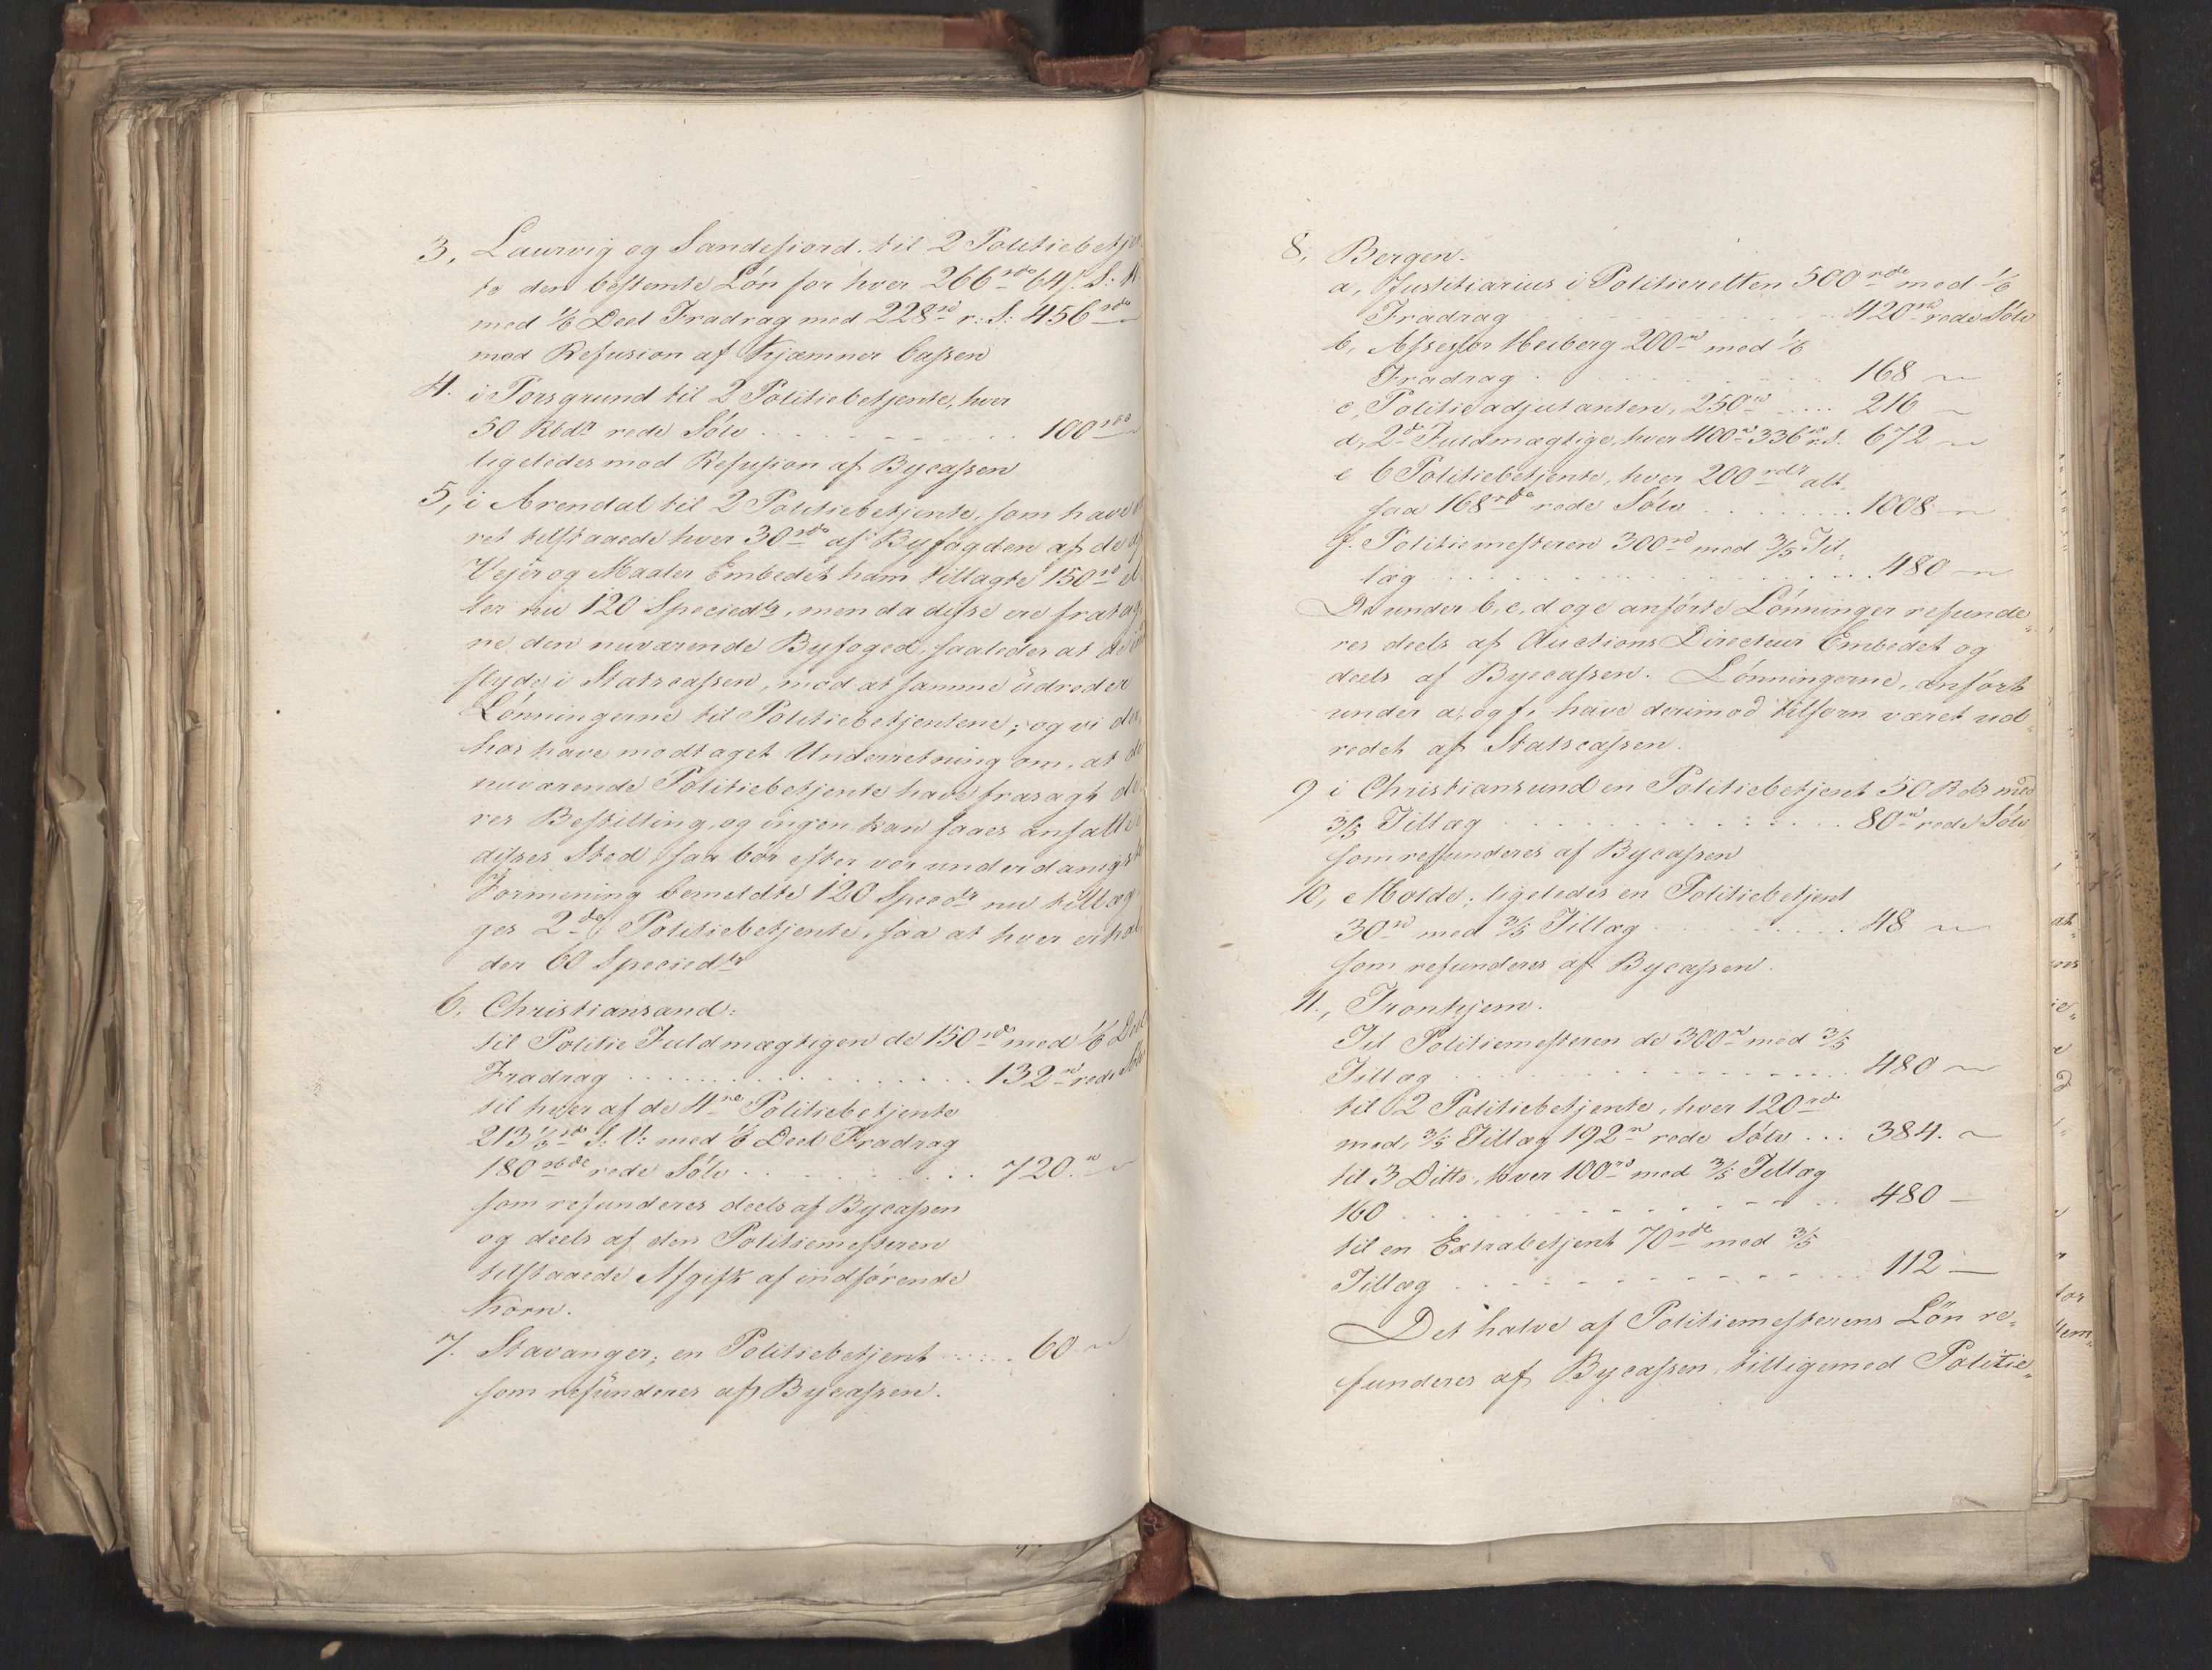 3, Laurvig og Sandefiord, til 2 Politiebetje
te den bestemte Lön for hver 266 rdr 64 s. S: V
med 1/6 Deel Fradrag med 228 rd r: S: 456 rdr
mod Refusion af Kjæmner Cassen
4. i Porsgrund til 2 Politiebetjente, hver
50 Rbdr rede Sölv . . . . . . . . . 100 rdr
ligeledes mod Refusion af Bycassen
5, i Arendal til 2 Politiebetjente, som have
ret tilstaaede hver 30 rdr af Byfogden af de af
Vejer og Maaler Embedet ham tillagte 150 rd el
ler nu 120 Speciedlr, men da disse ere fratag
ne den nuværende Byfoged, saaledes at de
flyde i Statscassen, mod at samme udreder
Lönningerne til Politiebetjentene; og vi der
hos have modtaget Underretning om, at de
nuværende Politiebetjente have frasagt de
res Bestilling, og ingen kan faaes ansatte
disses Sted, saa bör efter vor underdanigste
Formening bemeldte 120 Specdlr nu tillæg
ges 2de Politiebetjente, saa at hver erhol
der 60 Speciedlr
6. Christiansand:
til Politie Fuldmægtigen de 150 rdr med 1/6 Deel
Fradrag . . . . . . . . . . . . . 132 rd rede Sölv
til hver af de 4re Politiebetjente
213 1/3 rdr S. V: med 1/6 Deel Fradrag
180 rbdr rede Sölv . . . . . . . . . 720. "
som refunderes deels af Bycassen
og deels af den Politiemesteren
tilstaaede Afgift af indförende
Korn.
7. Stavanger; en Politiebetjent . . . . . 60 "
som refunderes af Bycassen.
8, Bergen.
a, Justitiarius i Politieretten 500 rdr med 1/6
Fradrag . . . . . . . . . . . . 420 rd rede Sölv
b, Assessor Heiberg 200 rd med 1/6
Fradrag . . . . . . . . . . . . 168 "
c, Politieadjutanten, 250 rd . . . . . 216 "
d, 2de Fuldmægtige, hver 400 rd 336 rd r. S. 672 "
e 6 Politiebetjente, hver 200 rdr alt-
saa 168 rdr rede Sölv . . . . . . . . 1008 "
f. Politiemesteren 300 rd med 3/5 Til-
læg . . . . . . . . . . . . . . 480 "
De under b, c, d og e anförte Lönninger refunde-
res deels af Auctions Directeur Embedet og
deels af Bycassen. Lönningerne, anfört
under a, og f, have derimod tilforn været ud-
redet af Statscassen.
9 i Christiansund en Politiebetjent 50 Rdr med
3/5 Tillæg . . . . . . . . . . . 80 rd rede Sölv
som refunderes af Bycassen
10, Molde; ligeledes en Politiebetjent
30 rd med 3/5 Tillæg . . . . . . . . 48 "
som refunderes af Bycassen.
11., Tronhjem.
Til Politiemesteren de 300 rd med 3/5
Tillæg . . . . . . . . . . . . . 480 "
til 2 Politiebetjente, hver 120 rdr
med 3/5 Tillæg 192 rd rede Sölv . . . 384. "
til 3 Ditto, hver 100 rd med 3/5 Tillæg
160 . . . . . . . . . . . . . . 480 —
til en Extrabetjent 70 rdr med 3/5
Tillæg . . . . . . . . . . . . . 112 —
Det halve af Politiemesterens Lön re-
funderes af Bycassen, tilligemed Politie-